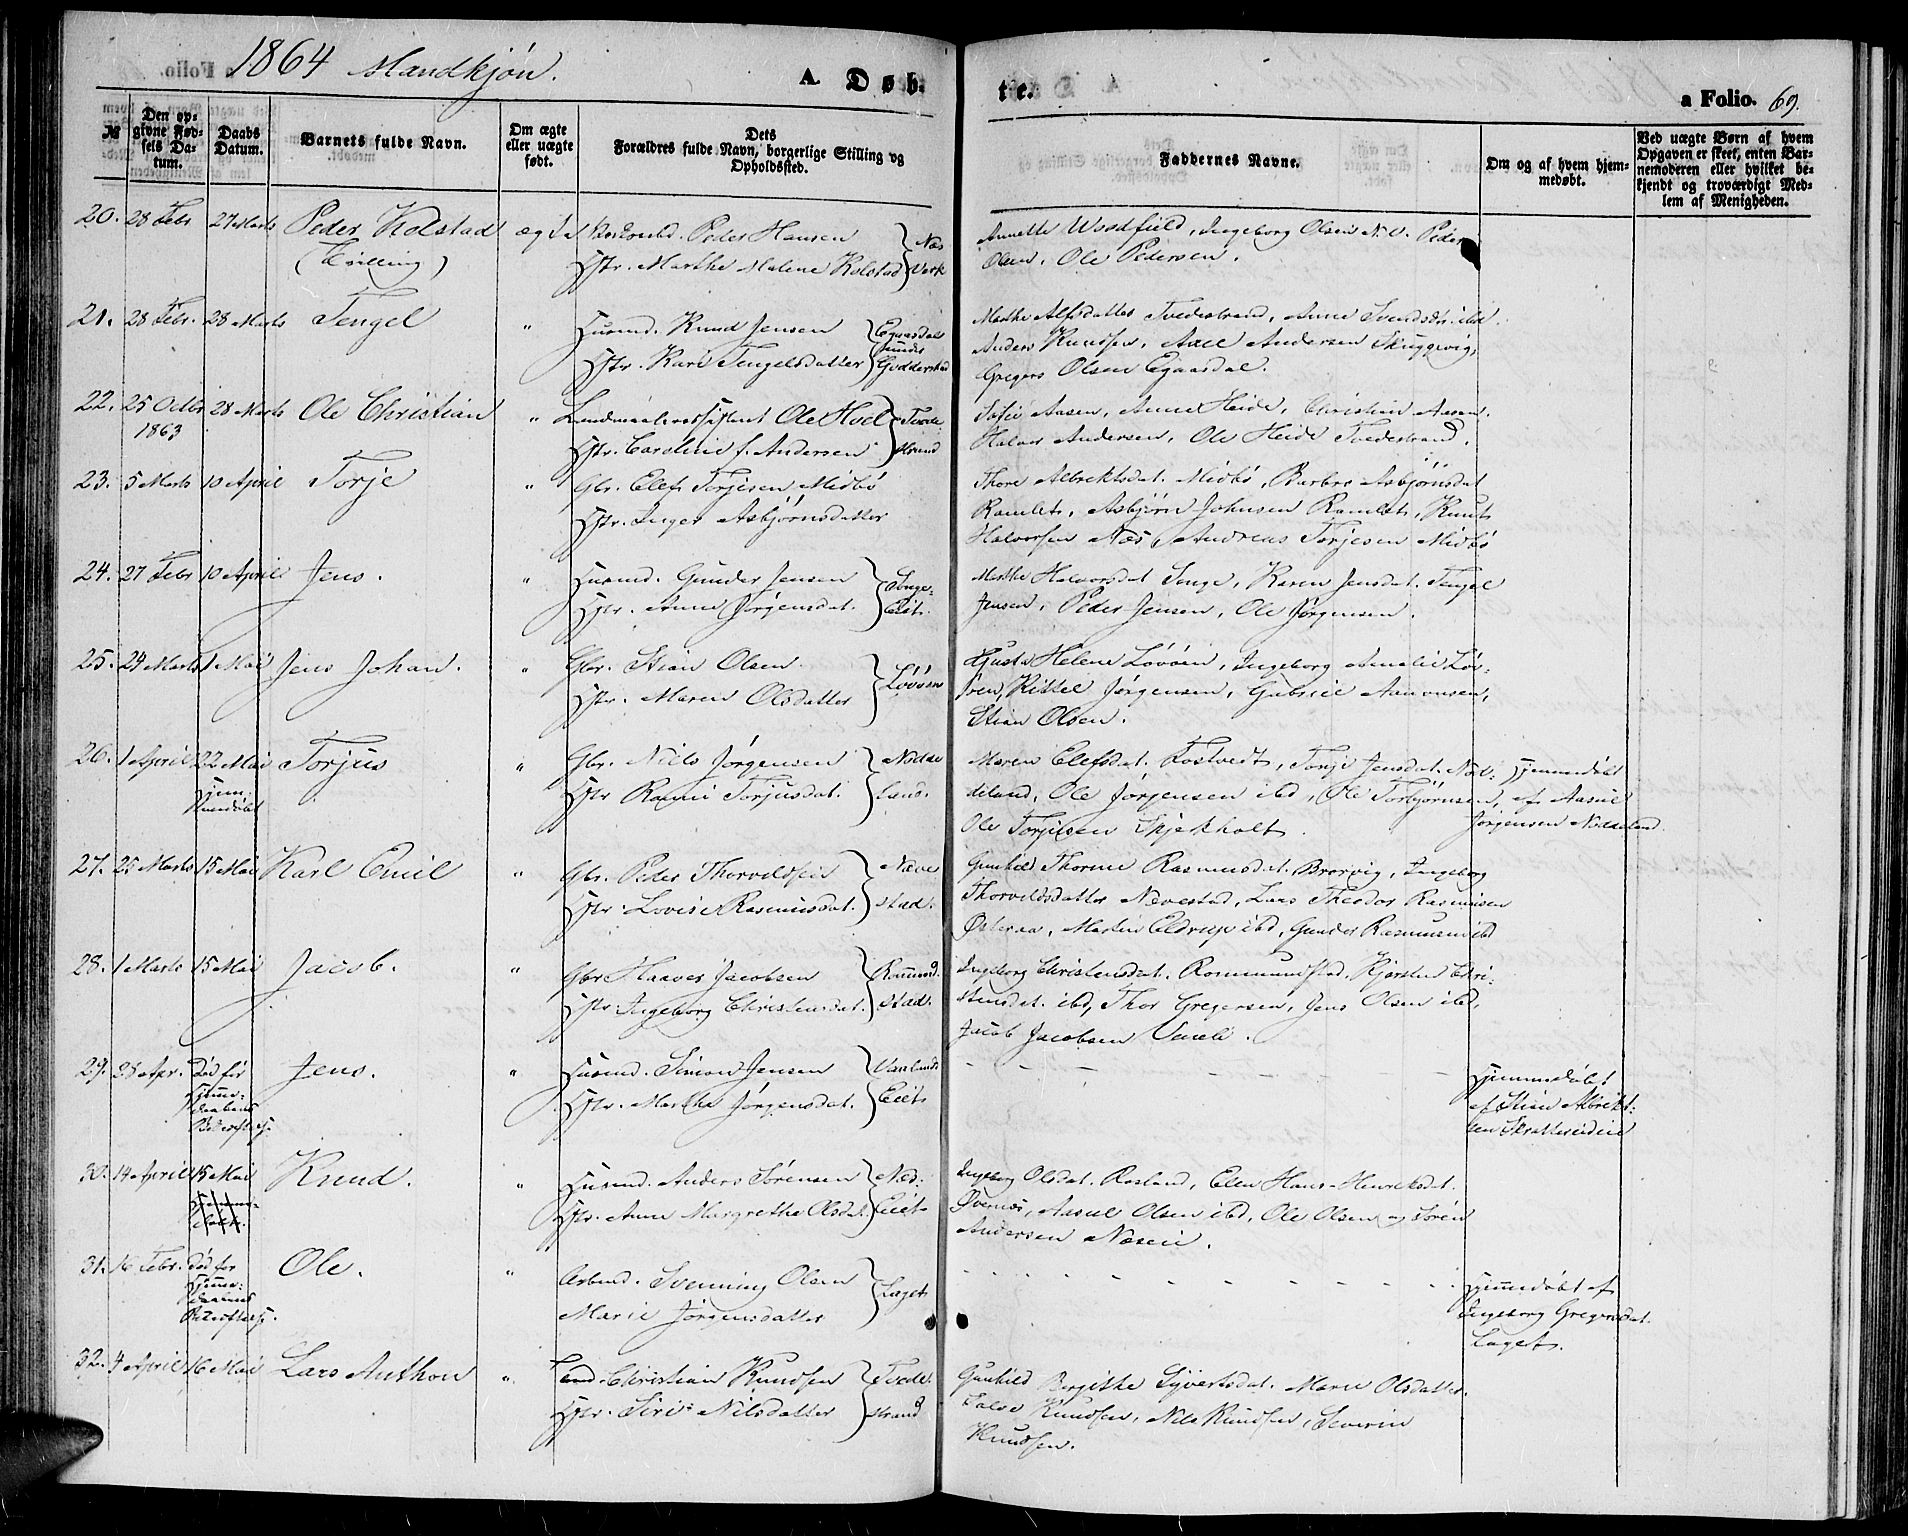 1864 Mandkjøn.
A. Døb-
te.
a Folio. 69.
№
Den op-
givne Fød-
sels Da-
tum.
Daabs
Datum.
Barnets fulde Navn.
Om ægte
eller uægte
født.
Dets
Forældres fulde Navn, borgerlige Stilling og
Opholdssted.
Faddernes Navne.
Om og af hvem hjem-
medøbt.
Ved uægte Børn af hvem
Opgaven er skeet, enten Bar-
nemoderen eller hvilket be-
kjendt og troværdigt Med-
lem af Menigheden.
20. 28 Febr 27 Marts Peder Kolstad ægte Peder Hansen Næs
(Tvilling) Hstr. Marthe Malene Kolstad Værk
Annette Woodfield, Ingeborg Olsen N.V. Peder
Olsen, Ole Pedersen.
21. 28 Febr. 28 Marts Tengel " Husmd. Knud Jensen Egaasdal
under
Hstr. Kari Tengelsdatter Godderstad
Marthe Alfsdatter Tvedestrand, Anne Svendsdtr. ibd.
Anders Knudsen, Axel Andersen Skuggevig,
Gregers Olsen Egaasdal.
22. 25 Octbr 28 Marts Ole Christian " Landmaalerassistent Ole Hoel Tvede-
1863 Hstr. Caroline f. Andersen strand
Sofie Aasen, Anne Heide, Christine Aasen.
Halvor Andersen, Ole Heide Tvedestrand.
23. 5 Marts 10 April Torje " Gbr. Elef Torjesen Midbö
Hstr. Inger Asbjörnsdatter
Thore Albrektsdat. Midbö, Barbro Asbjörnsdat
Ramlet, Asbjörn Johnsen Ramlet, Knut
Halvorsen Næs, Andreas Torjesen Midbö
24. 27 Febr 10 April Jens. " Husmd. Gunder Jensen Songe-
Hstr. Anne Jörgensdat. Eiet.
Marthe Halvorsdat Songe, Karen Jensdat. Tengel
Jensen, Peder Jensen, Ole Jörgensen.
25. 24 Marts 1 Mai Jens Johan. " Gbr. Stian Olsen Lövöen
Hstr. Maren Olsdatter
Gusta Helene Lövöen, Ingeborg Amalie Löv-
öen, Kittel Jörgensen, Gabriel Aanonsen,
Stian Olsen.
26. 1 April 22 Mai Torjus " Gbr. Niels Jörgensen Nödde
Hjem-
medöbt Hstr Ranni Torjusdat. land.
Maren Elefsdat. Fostvedt, Torje Jensdat. Nöd-
deland, Ole Jörgensen ibd, Ole Torbjörnsen,
Ole Torjesen Spjekholt.
Hjemmedöbt
af Aasul
Jörgensen Nöddeland
27. 25 Marts 15 Mai Karl Emil " Gbr. Peder Thorvildsen Neve
Hstr. Lovise Rasmusdat. stad.
Gunhild Thorine Rasmusdat. Brorvig, Ingeborg
Thorvildsdatter Nevestad, Lars Theodor Rasmusen
Österaa, Martin Eldrup ibd, Gunder Rasmusen ibd
28. 1 Marts 15 Mai Jacob. " Gbr Haaver Jacobsen
Hstr Ingeborg Christensdat. stad.
Ingeborg Christensdat. Kjersten Chri-
stensdat. ibd, Thor Gregersen, Jens Olsen ibd,
Jacob Jacobsen
29. 28 Apr. Död för
Hjemme-
daabens
Jens. " Husmd. Simon Jensen
Hstr. Marthe Jörgensdat. Eiet
Hjemmedöbt
af Stian Albrikt-
sen
30. 14 April 15 Mai Knud. " Husmd. Anders Sörensen Næs-
Hstr. Anne Margrethe Olsdat. Eiet
Ingeborg Olsdat. Rosland, Elen Hans-Henriksdat.
Övernæs, Aasul Olsen ibd, Ole Olsen og Sören
Andersen Næseie.
31. 16 Febr. Död för
Hjemme-
daabens
Ole. " Arbmd. Svenning Olsen Laget
Marie Jörgensdatter
Hjemmedöbt af
Ingeborg Gregersdat.
Laget.
32. 4 April 16 Mai Lars Anthon " Christian Knudsen Tvede-
Hstr. Siri Nilsdatter strand
Gunhild Bergithe Syvertsdat. Marie Olsdatter
Salve Knudsen, Nils Knudsen, Severin
Knudsen.